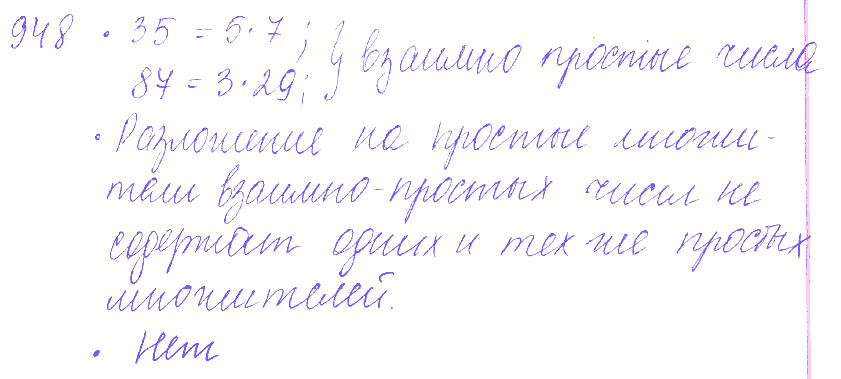 948 • 35 = 5·7; } взаимно простые числа
87 = 3·29;
• Разложение на простые множи-
тели взаимно-простых чисел не
содержат одних и тех же простых
множителей.
• Нет